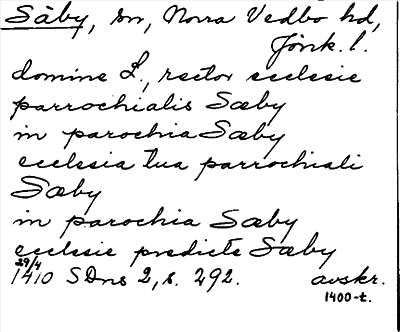 Säby, sn, Norra Vedbo hd,
Jönk. l.
domine L., rector ecclesie
parrochialis Sæby
in parochia Sæby
ecclesia tua parrochiali
Sæby
in parochia Sæby
ecclesie predicte Sæby
29/4
1410 SDns 2, s. 292. avskr.
1400-t.